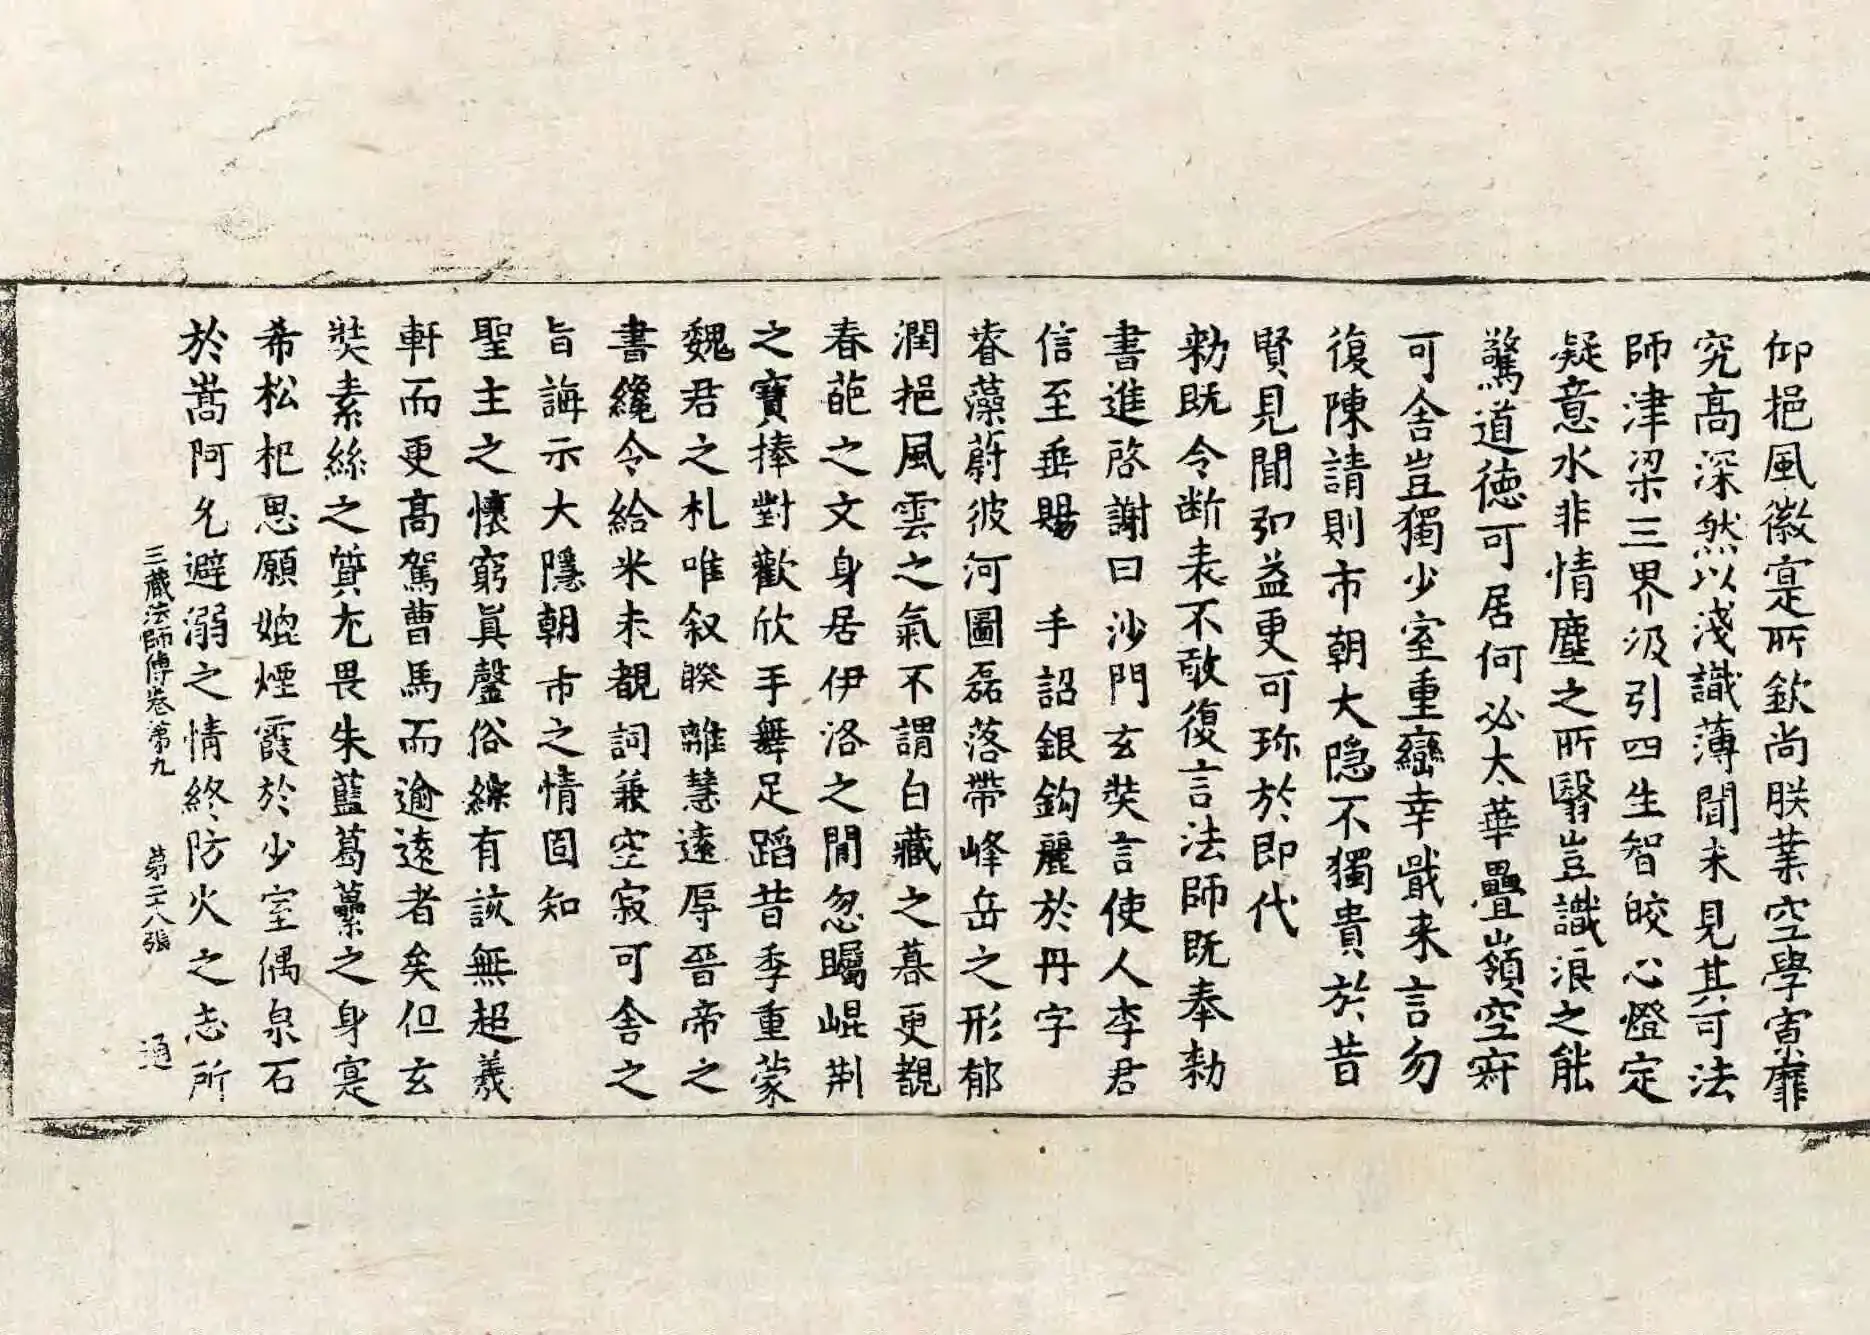 仰挹風徽寔所欽尚朕業空學寡靡
究高深然以淺識薄聞未見其可法
師津梁三界汲引四生智皎心燈定
凝意水非情塵之所翳豈識浪之能
驚道德可居何必太華疊嶺空寂
可舍豈獨少室重巒幸戢来言勿
復陳請則市朝大隐不獨貴於昔
賢見聞弘益更可珎於即代
勑既令断表不敢復言法師既奉勑
書進啓謝曰沙門玄奘言使人李君
信至垂賜 手詔銀鈎麗於丹字
睿藻蔚彼河圖磊落帶峰岳之形郁
潤挹風雲之氣不謂白藏之暮更覩
春葩之文身居伊洛之閒忽矚崐荆
之寶捧對歡欣手舞足蹈昔季重蒙
魏君之札唯叙睽離慧遠辱晉帝之
書纔令給米未覩詞兼空寂可舍之
旨誨示大隱朝市之情固知
聖主之懷窮真罄俗綜有該無超羲
軒而更高駕曹馬而逾遠者矣但玄
奘素絲之質尤畏朱藍葛藟之身寔
希松杞思願媲煙霞於少室偶泉石
於嵩阿允避溺之情終防火之志所
三藏法師傳卷第九 第二十八張 通